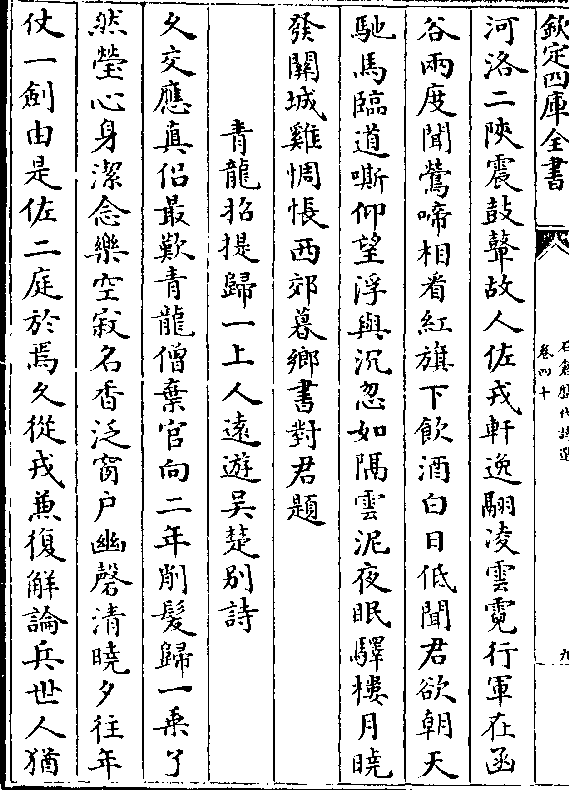 欽定四庫全書
石倉歴代詩選
卷四十
九
河洛二陜震鼓鼙故人佐戎軒逸翮凌雲霓行軍在函
谷兩度聞鶯啼相看紅旗下飲酒白日低聞君欲朝天
馳馬臨道嘶仰望浮與沉忽如隔雲泥夜眠驛樓月曉
發關城雞惆悵西郊暮鄉書對君題
青龍招提歸一上人逺遊吳楚别詩
久交應真侣最歎青龍僧棄官向二年削髪歸一乗了
然瑩心身潔念樂空寂名香泛窗户幽磬清曉夕往年
仗一劍由是佐二庭於焉久從戎兼復解論兵世人猶